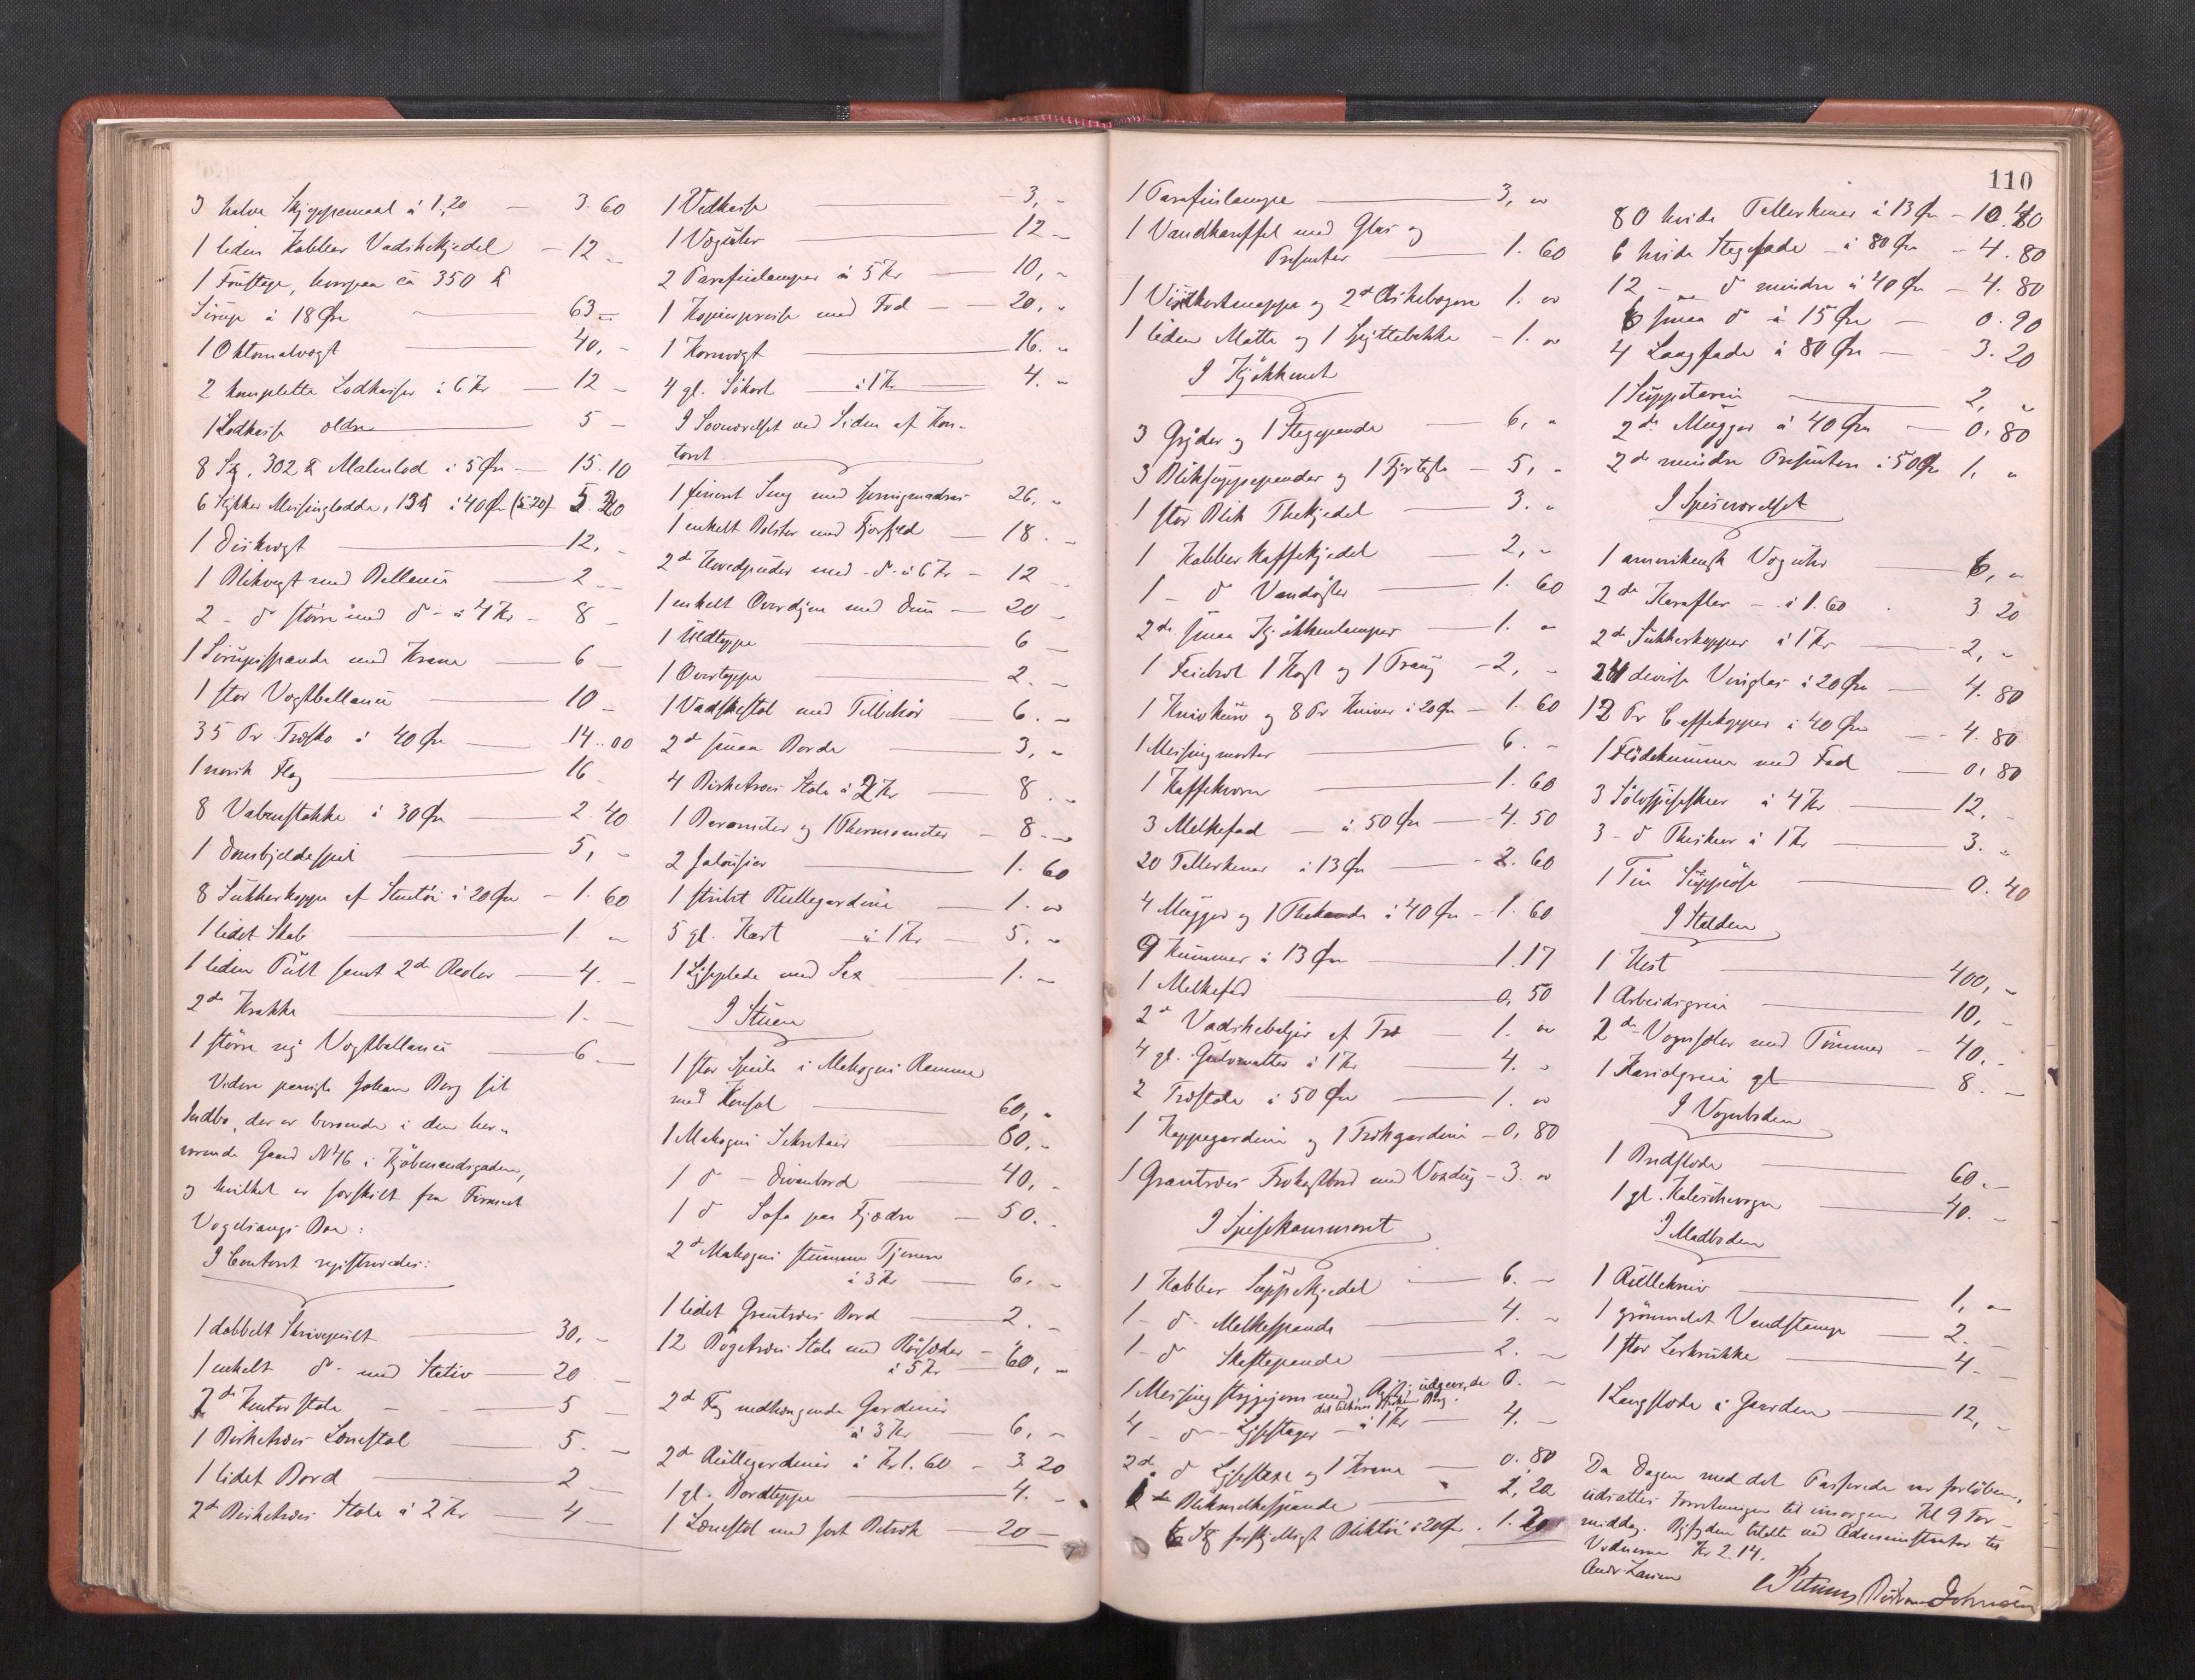 3 halve Skjeppemaal á 1,20 — 3.60
1 liden Kobber Vadskekjedel — 12 –
1 Foustage, hvorpaa ca 350 ℔
Sirup á 18 Øre — 63 –
1 Oktomalvægt — 40, –
2 komplette Lodkasser á 6 Kr — 12 –
1 Lodkasse ældre — 5 –
8 St. 302 ℔ Malmlod á 5 Øre — 15.10
6 Stykker Messinglodder, 13 ℔ á 40 Øre (5-20) 5.20
1 Diskvægt — 12, –
1 Blikvægt med Ballance — 2 –
2 – do større med do – á 4 Kr – 8 –
1 Sirupsspande med Krane — 6 –
1 stor Vægtballance — 10 –
35 Pr Træsko á 40 Øre — 14.00
1 norsk Flag — 16 –
8 Stokke á 30 Øre — 2.40
1 — 5, –
8 Sukkerkopper af Stentøi á 20 Øre – 1.60
1 lidet Skab — 1. –
1 liden Pult samt 2de Reoler — 4. –
2de Krakke — 1. –
1 større ny Vægtballance — 6. –
Videre Johan Berg sit
Indbo, der er beroende i den her-
værende Gaard No 46 i Kjøbmandsgaden,
og hvilket er forskilt fra Firmaet
Vogelsangs Boe:
I Contoret registreredes:
1 dobbelt Skrivepult — 30, –
1 enkelt do – med Stativ — 20 –
2de Kontorstole — 5 –
1 Birketræes Lænestol — 5. –
1 lidet Bord — 2 –
2de Birketræes Stole á 2 Kr — 4 –
1 Vedkasse — 3, –
1 Væguhr — 12 –
2 Parafinlamper á 5 Kr — 10, –
1 Kopierpresse med Fod — 20, –
1 Kornvægt — 16. –
4 gl. Søkart á 1 Kr — 4. –
I Soveværelset ved Siden af Kon-
toret.
1 fineret Seng med Springmadras 26. –
1 enkelt Bolster med Fjærfyld — 18. –
2de Hovedpuder med – do – á 6 Kr – 12 –
1 enkelt Overdyne med Dun — 20 –
1 Uldteppe — 6 –
1 Overteppe — 2. –
1 Vadskestol med Tilbehør — 6. –
2de smaa Borde — 3, –
4 Birketræes Stole á 2 Kr — 8. –
1 Barometer og 1 Thermometer — 8. –
2 Jalousier — 1.60
1 stribet Rullegardine — 1. –
5 gl. Kart — á 1 Kr — 5, –
1 Lyseplade med Sax — 1. –
I Stuen
1 stor Speile i Mahogni Ramme
med Konsol — 60, –
1 Mahogni Sekretair — 80, –
1 do – Divanbord — 40, –
1 do Sofa paa Fjædre — 50. –
2de Mahogni stumme Tjenere
á 3 Kr — 6. –
1 lidet Grantræes Bord — 2. –
12 Bøgetræes Stole med Rørsæder
á 5 Kr — 60, –
2de Fag nedhængende Gardiner
á 3 Kr 6, –
2de Rullegardiner á Kr 1.60 – 3.20
1 gl. Bordteppe — 4. –
1 Lænestol med sort Betræk — 20 –
110
1 Parafinlampe — 3, –
1 Vandkaraffel med Glas og
Presenter — 1.60
1 Visitkortsmappe og 2de Askebægere 1. –
1 liden Matte og 1 Spyttebakke – 1. –
I Kjøkkenet
3 Gryder og 1 Stegepande — 6, –
3 Bliksuppepander og 1 – 5, –
1 stor Blik Thekjedel — 3. –
1 Kobber Kaffekjedel — 2, –
1 – do Vandøser — 1.60
2de smaa Kjøkkenlamper — 1. –
1 Feiebræt 1 Kost og 1 – 2, –
1 Knivkurv og 8 Pr Knive á 20 Øre – 1.60
1 Messingmorter — 6. –
1 Kaffekværn — 1.60
3 Melkefad — á 50 Øre — 4.50
20 Tellerkener á 13 Øre — 2.60
4 Mugger og 1 Thekande á 40 Øre – 1.60
9 Kummer á 13 Øre — 1.17
1 Melkefad — 0,50
2de Vadskebaljer af Træ — 1. –
4 gl. Gulvmatter á 1 Kr — 4. –
2 Træstole á 50 Øre — 1. –
1 Kappegardine og 1 Trækgardine – 0,80
1 Grantræes Frokostbord med Voxdug – 3. –
I Spisekammeret
1 Kobber Suppekjedel — 6. –
1 – do – Melkespande — 4. –
1 – do Skaftepande — 2. –
1 Messing strygejern med udgaar, da 0. –
det tilhører Berg.
4 – do – Lysestager – á 1 Kr — 4. –
2de do Lysestage og 1 Krane — 0.80
Blikmelkespande — 1,20
6 St forskjelligt Bliktøi á 20 Øre. 1.20
80 hvide Tellerkener á 13 Øre – 10.40
6 hvide Stegefade – á 80 Øre – 4.80
12 – do mindre á 40 Øre – 4.80
6 smaa do á 15 Øre — 0.90
4 Laagfade á 80 Øre — 3.20
1 Suppeterrin — 2, –
2de Mugger á 40 Øre — 0.80
2de mindre Presentere á 50 Øre 1, –
I Spiseværelset
1 amerikansk Væguhr — 6, –
2de Karafler – á 1.60 3.20
2de Sukkerkopper á 1 Kr — 2, –
24 diverse Vinglas á 20 Øre — 4.80
12 Pr Caffekopper á 40 Øre — 4.80
1 Flødekumme med Fad — 0,80
3 Sølvspiseskeer á 4 Kr — 12. –
3 – do Theskeer á 1 Kr — 3. –
1 Tin Suppeøse — 0.40
I Stalden
1 Hest — 400, –
1 Arbeidsgreie — 10, –
2de Vognsæler med Tømmer – 40. –
1 Kariolgreie gl — 8. –
I Vognboden
1 Bredslæde — 60. –
1 gl. Kaleschevogn — 40. –
I Madboden
1 Rullekniv — 1, –
1 grønmalet Vandstampe — 2. –
1 stor Lerkrukke — 4 –
1 Langslæde i Gaarden — 12, –
Da Dagen med det Passerede var forløben,
udsattes Forretningen til imorgen Kl 9 For-
middag. tildelte ved Administrator til
Vidnerne Kr 2.14.
Andr Larsen